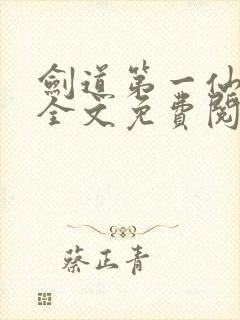 劍道第一仙
全文免費閱
蔡正青